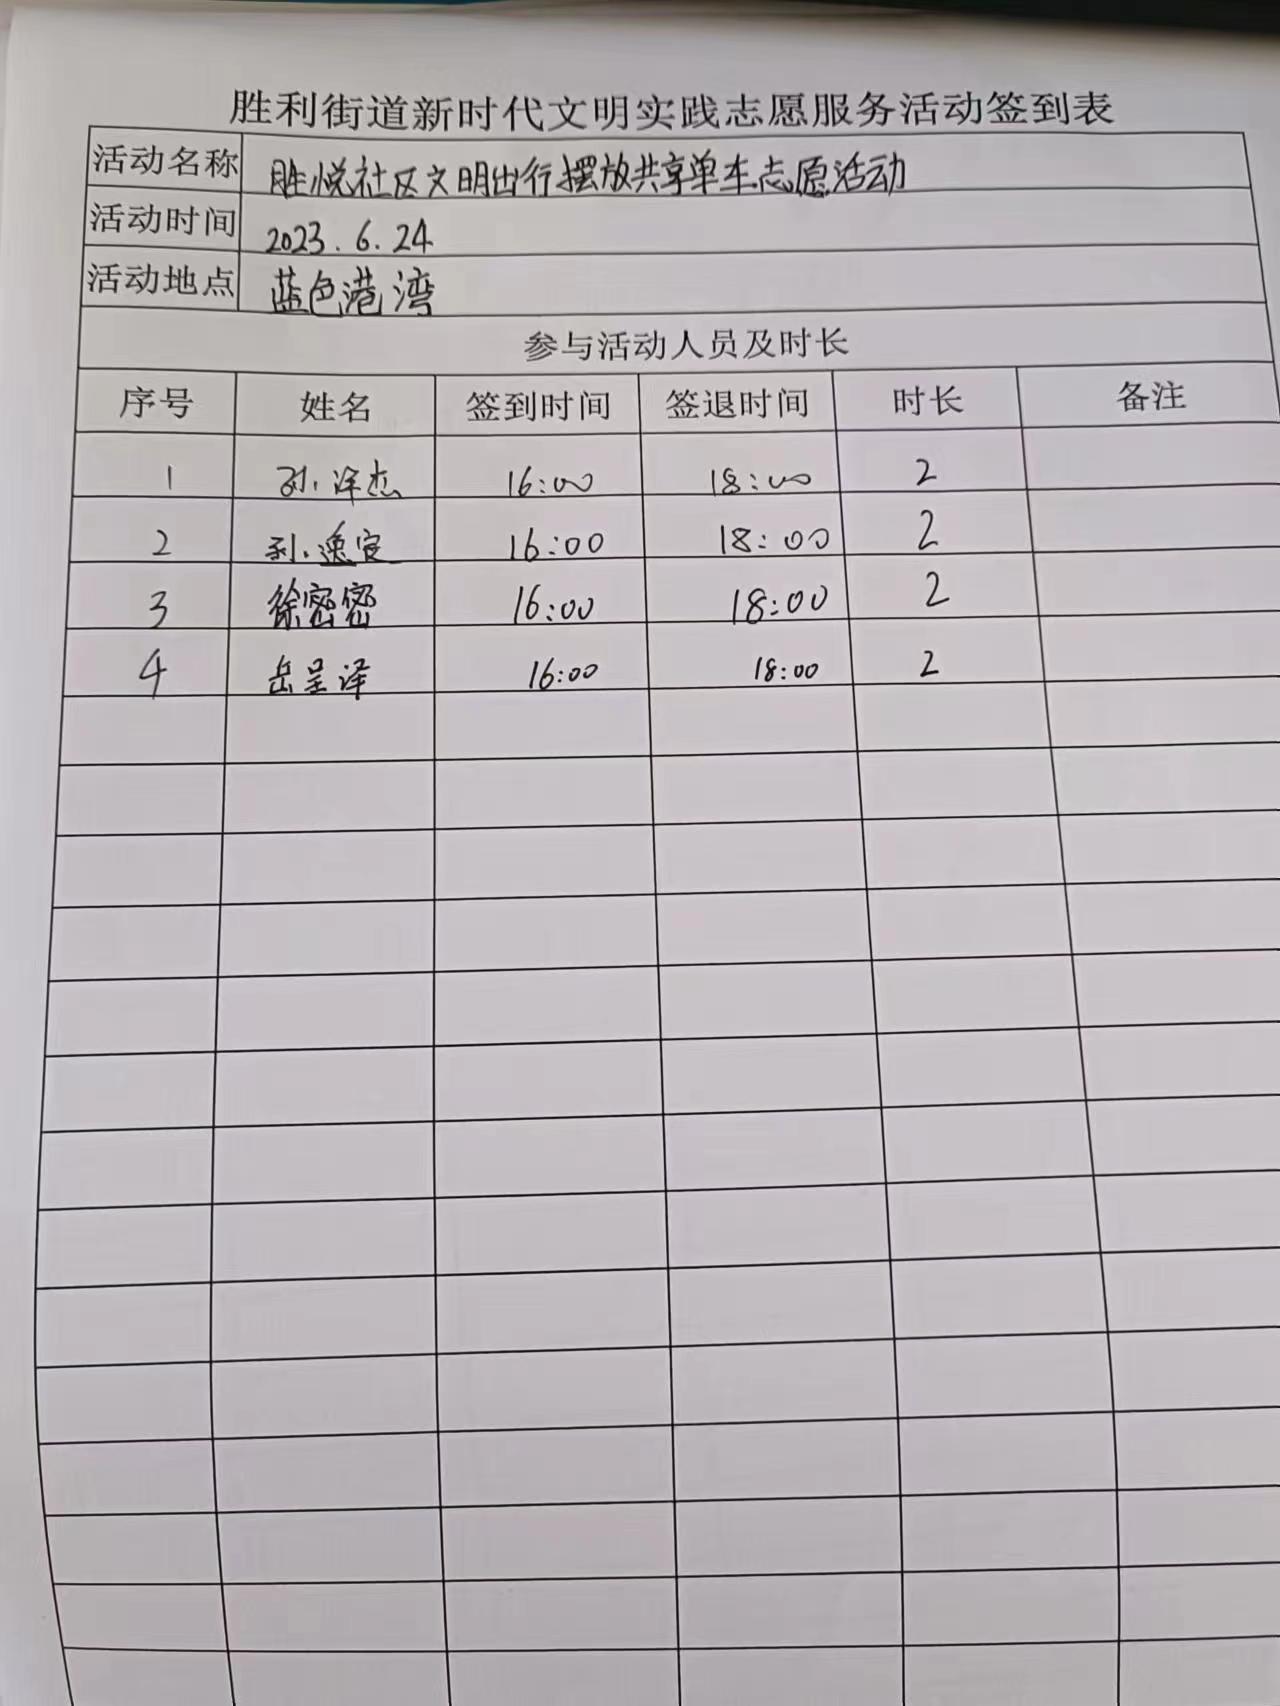 胜利街道新时代文明实践志愿服务活动签到表
活动名称 胜悦社区文明出行摆放共享单车志愿活动
活动时间 2023.6.24
活动地点 蓝色港湾
参与活动人员及时长
序号 姓名 签到时间 签退时间 时长 备注
1 孙泽杰 16:00 18:00 2
2 孙逸宸 16:00 18:00 2
3 徐密密 16:00 18:00 2
4 岳呈泽 16:00 18:00 2